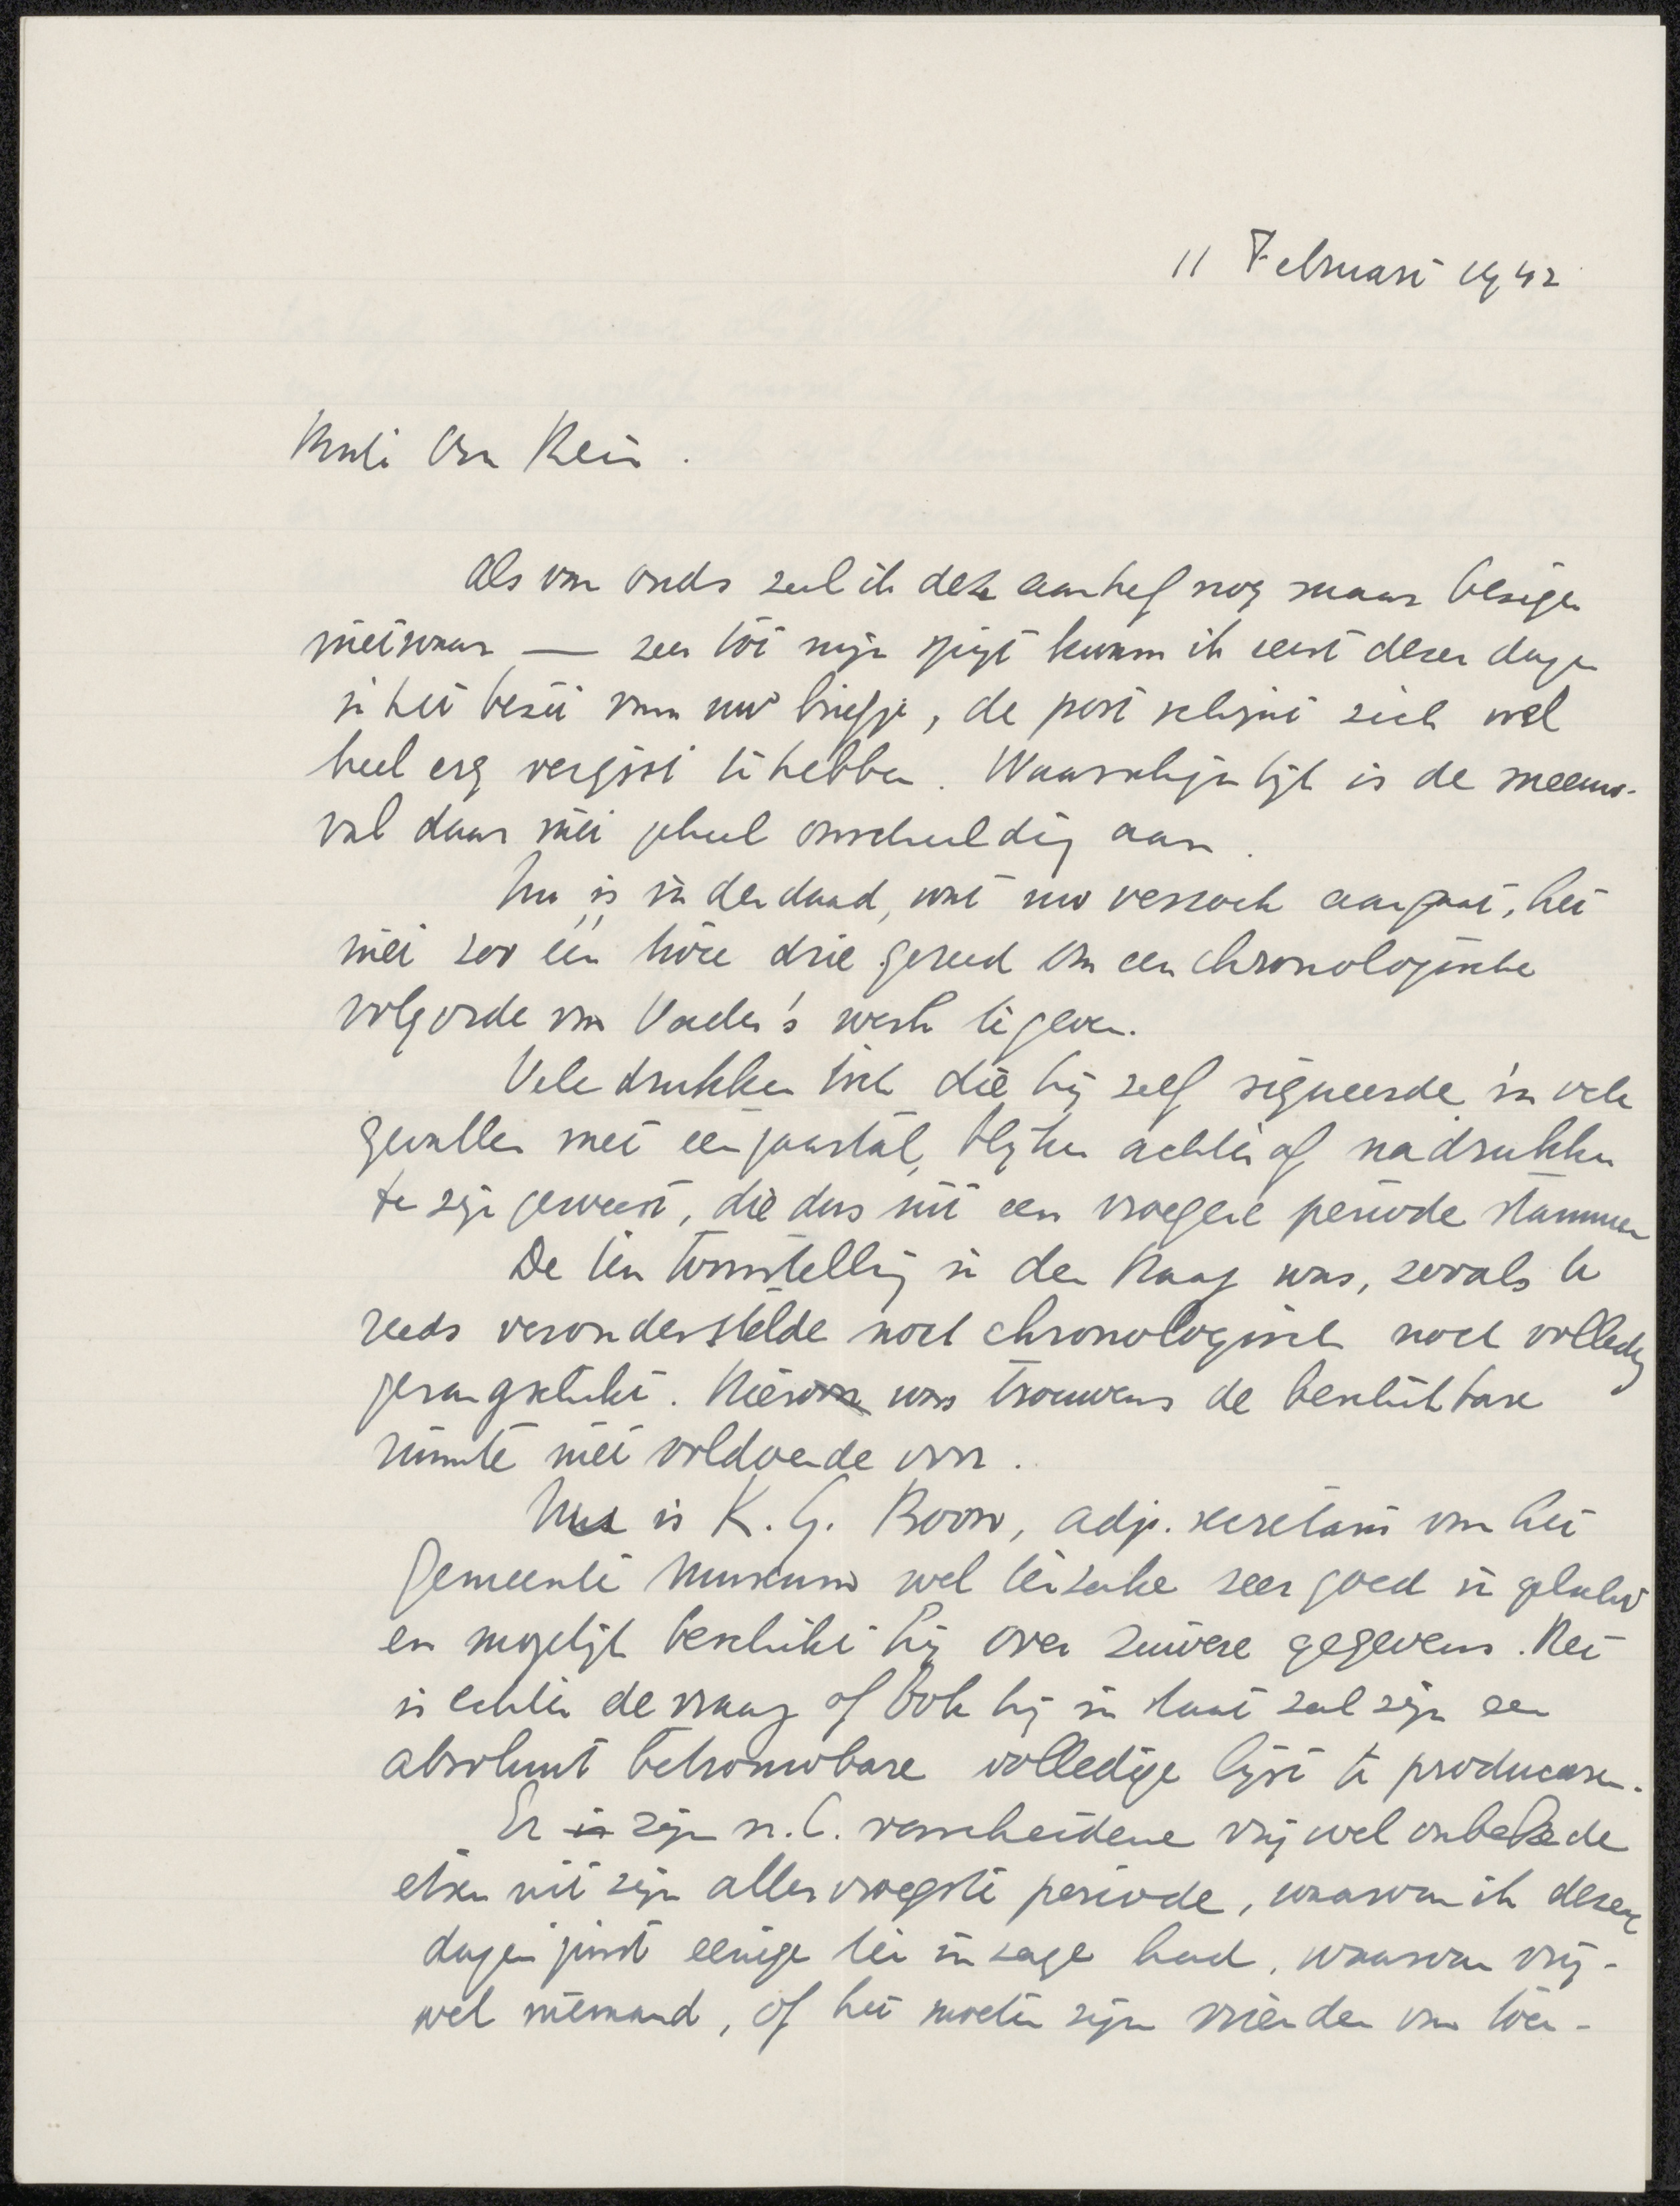 11 Februari 1942
als van ouds zal ik deze aanhef nog maar bezigen
nietwaar — zeer tot mijn spijt kwam ik eerst dezer dagen
in het bezit van uw briefje, de post schijnt zich wel
heel erg vergist te hebben. Waarschijnlijk is de sneeuw-
val daar niet geheel onschuldig aan.
Nu is in der daad, wat uw verzoek aangaat, het
niet zoo één twee drie gereed om een chronologische
volgorde van Vader's werk te geven.
Vele drukken toch die hij zelf signeerde in vele
gevallen met een jaartal, blijken achteraf nadrukken
te zijn geweest, die dus uit een vroegere periode stammen
De tentoonstelling in den Haag was, zooals U
reeds veronderstelde noch chronologisch noch volledig
gerangschikt. Hiervoor was trouwens de beschikbare
ruimte niet voldoende voor.
Nu is K. G. Boon, adj. secretaris van het
Gemeente Museum wel terzake zeer goed in
en mogelijk beschikt hij over zuivere gegevens. Het
is echter de vraag of ook hij in staat zal zijn een
absoluut betrouwbare volledige lijst te produceeren.
Er is zijn n.l. verscheidene vrijwel onbekende
etsen uit zijn allervroegste periode, waarvan ik dezer
dagen juist eenige ter inzage had, waarvan vrij-
wel niemand, of het moeten zijn vrienden van toen-